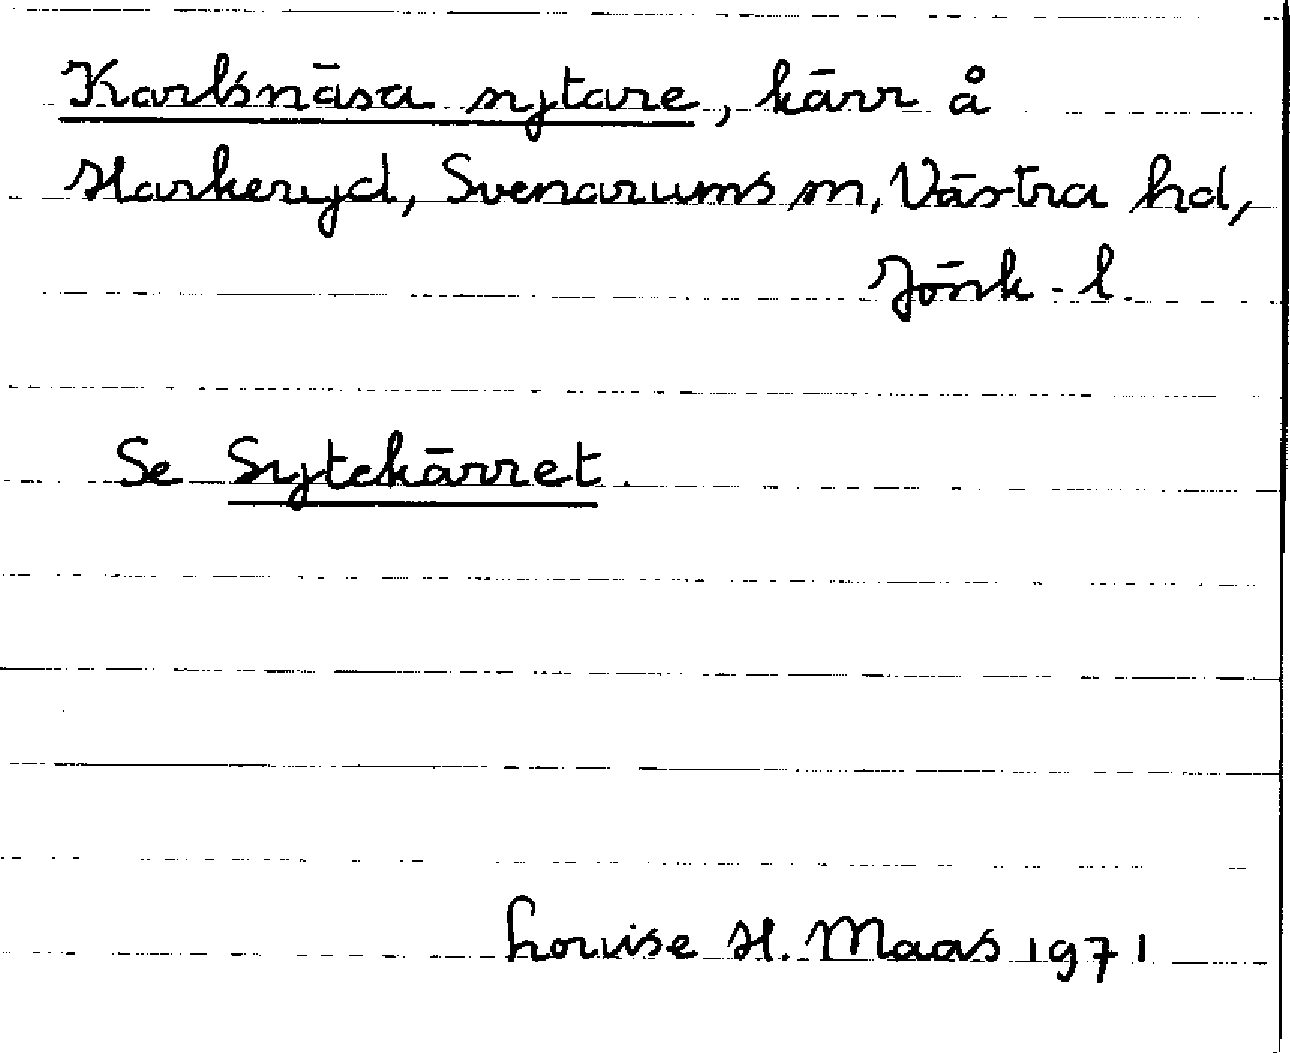 Karlsnäsa sytare, kärr å
Harkeryd, Svenarums sn, Västra hd,
Jönk - l.
Se Sytekärret.
Lovise H. Maas 1971